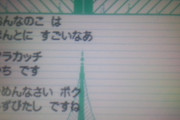 んなのこ は
んとに すごいなあ
ラカッチ
ち です
めんなさい ボク
ずびたし ですね